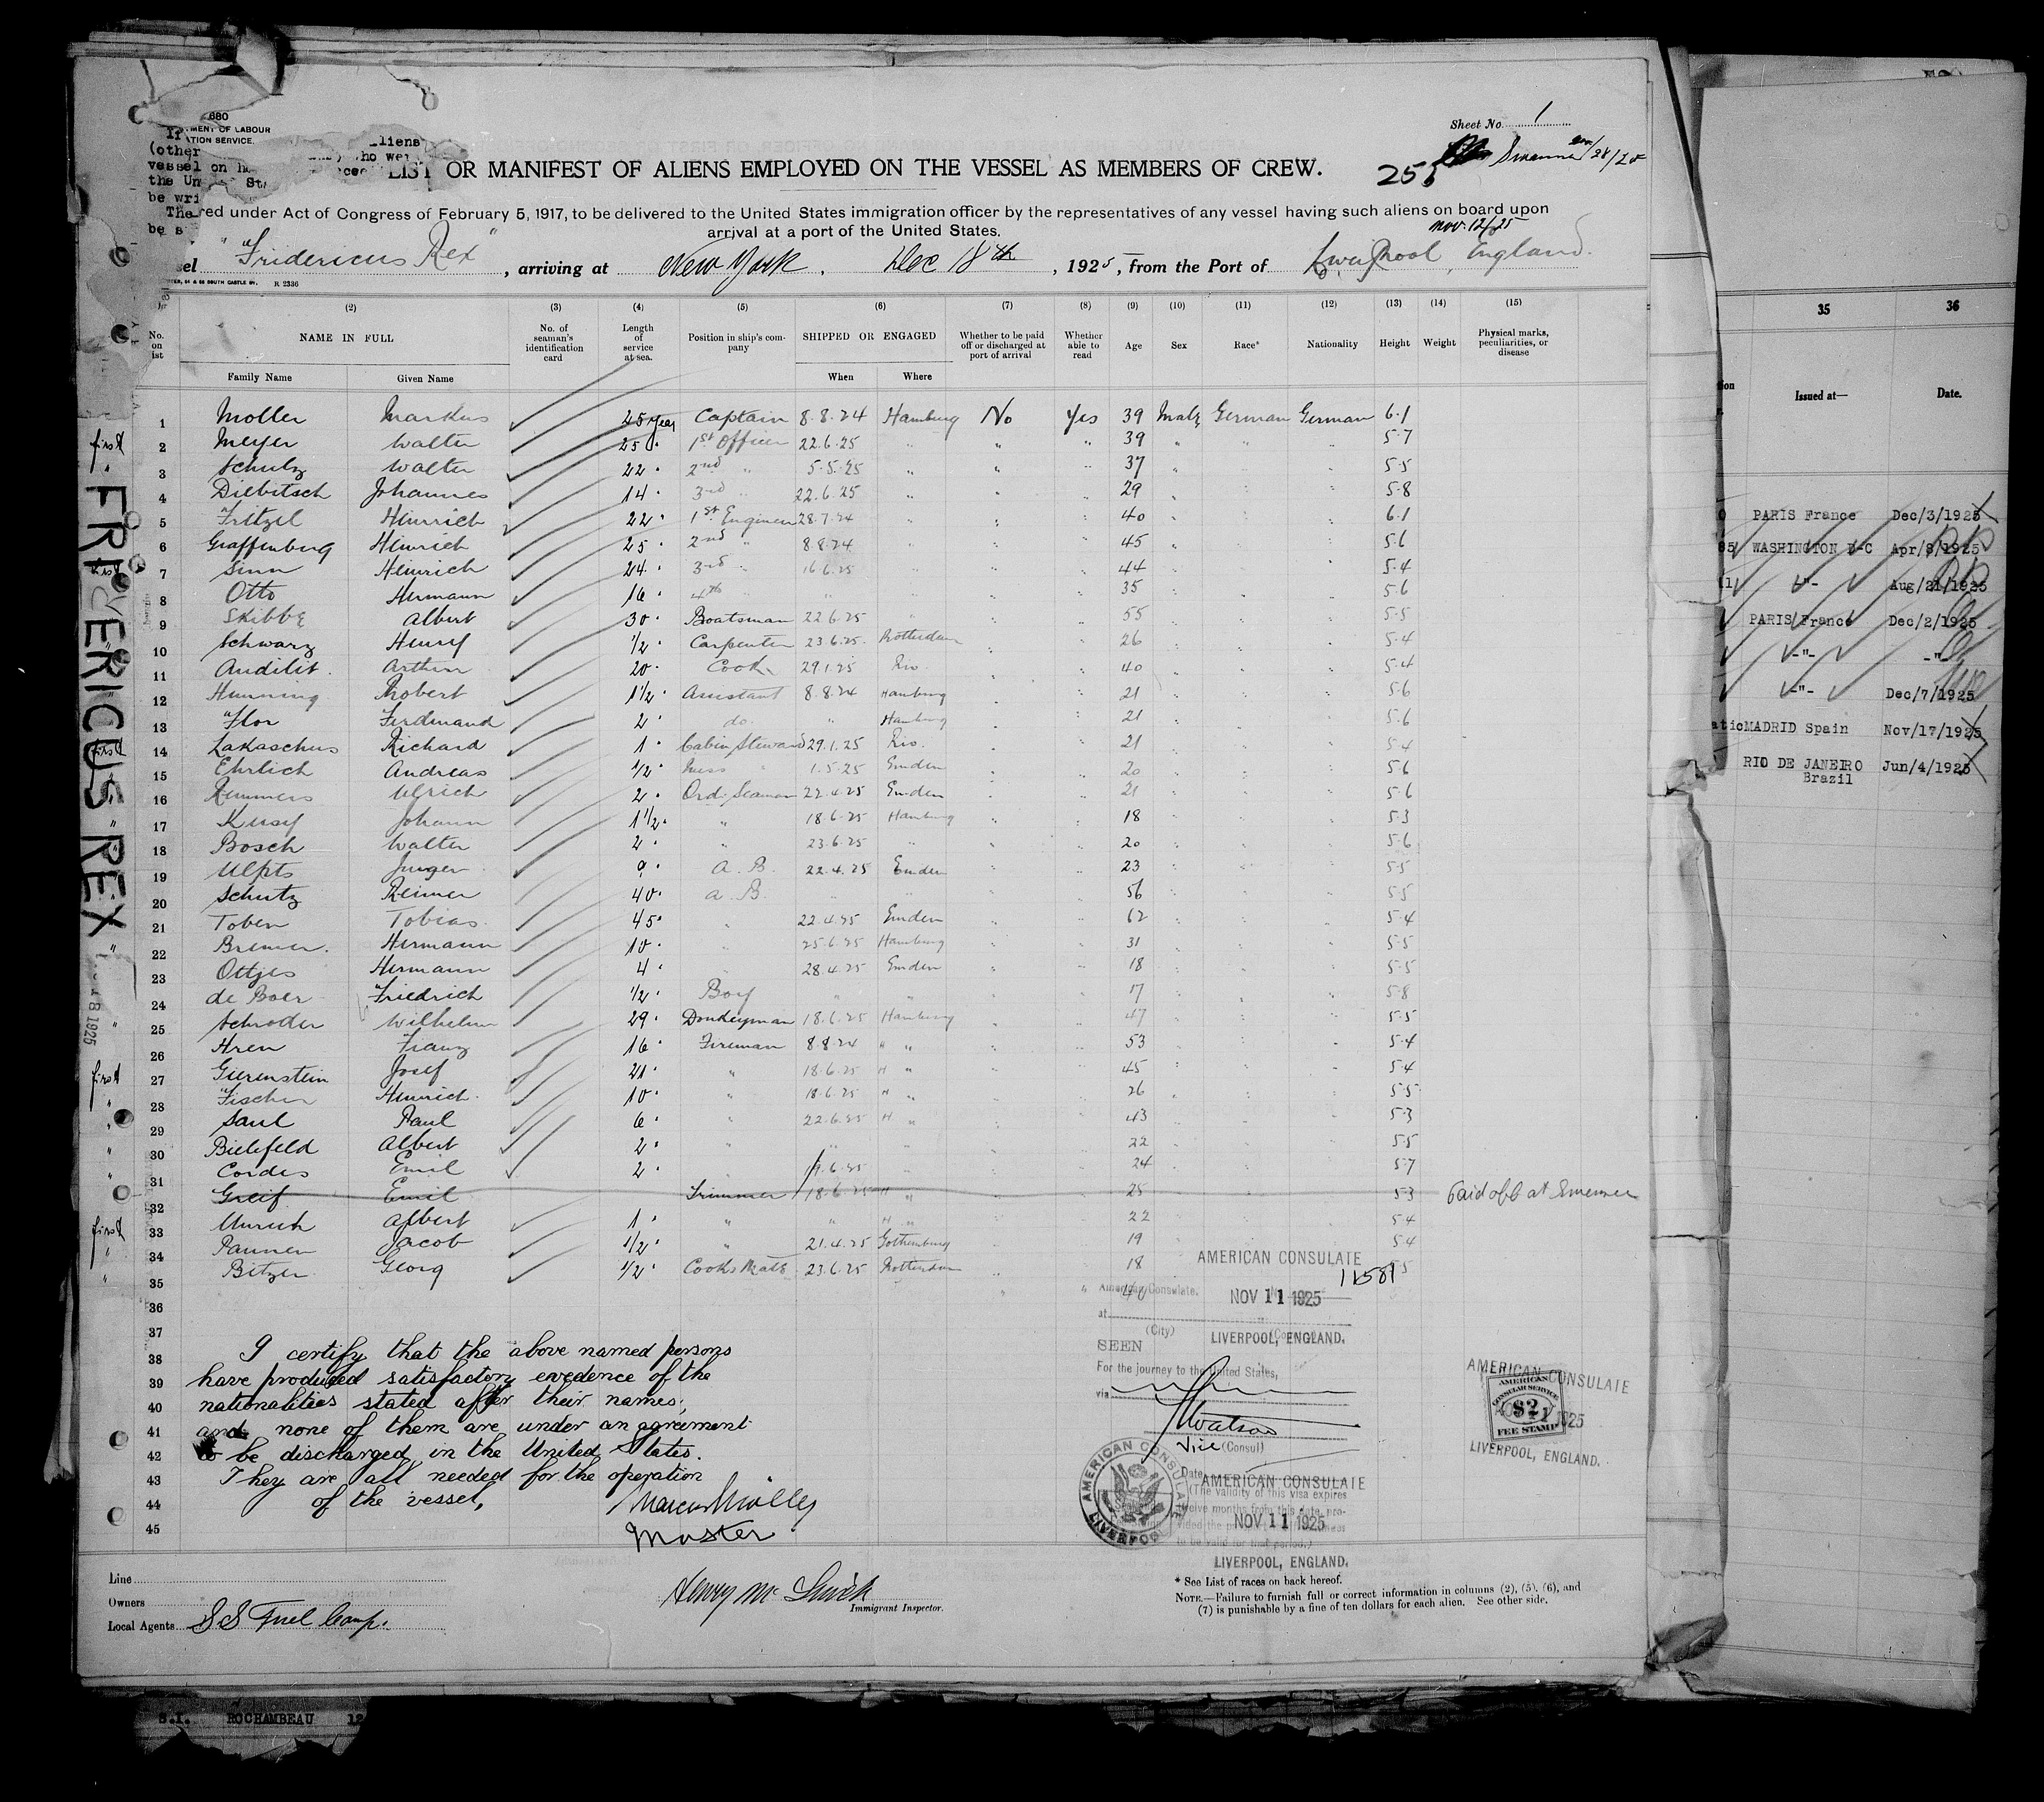 680
MENT OF LABOUR
ATION SERVICE.
If
liens
(other
who we
vessel on
the Un
be wri
The
be s
Sheet No. 1
LIST OR MANIFEST OF ALIENS EMPLOYED ON THE VESSEL AS MEMBERS OF CREW.
red under Act of Congress of February 5, 1917, to be delivered to the United States immigration officer by the representatives of any vessel having such aliens on board upon
arrival at a port of the United States.
Nov. 12/25
sel "Fridericus Rex", arriving at New York. Dec 18th, 1925, from the Port of Liverpool, England.
R 2336
(2) (3) (4) (5) (6) (7) (8) (9) (10) (11) (12) (13) (14) (15)
No. on ist NAME IN FULL No. of seaman's identification card Length of service at sea. Position in ship's company SHIPPED OR ENGAGED Whether to be paid off or discharged at port of arrival Whether able to read Age Sex Race* Nationality Height Weight Physical marks, peculiarities, or disease
Family Name Given Name When Where
1 Moller Markus 25 year Captain 8.8.24 Hamburg No Yes 39 Male German German 6.1
first 2 Meyer Walter 25 " 1st Officer 22.6.25 " " " 39 " " " 5.7
" 3 Schulz Walter 22 " 2nd " 5.5.25 " " " 37 " " " 5.5
4 Diebitsch Johannes 14 " 3rd " 22.6.25 " " " 29 " " " 5.8
5 Fritzel Heinrich 22 " 1st Engineer 28.7.24 " " " 40 " " " 6.1
6 Graffenberg Heinrich 25 " 2nd " 8.8.24 " " " 45 " " " 5.6
first 7 Sinn Heinrich 24 " 3rd " 16.6.25 " " " 44 " " " 5.4
8 Otto Hermann 16 " 4th " " " " " 35 " " " 5.6
9 Skibbe Albert 30 " Boatsman 22.6.25 " " " 55 " " " 5.5
10 Schwarz Henry 1/2 " Carpenter 23.6.25 Rotterdam " " 26 " " " 5.4
11 Audilit Arthur 20 " Cook 29.1.25 Rio. " " 40 " " " 5.4
12 Henning Robert 1 1/2 " Assistant 8.8.24 Hamburg " " 21 " " " 5.6
13 Flor Ferdinand 2 " do. " Hamburg " " 21 " " " 5.6
first 14 Lakaschus Richard 1 " Cabin Steward 29.1.25 Rio. " " 21 " " " 5.4
15 Ehrlich Andreas 1/2 " Mess " 1.5.25 Emden " " 20 " " " 5.6
16 Remmers Ulrich 2 " Ord. Seaman 22.4.25 Emden " " 21 " " " 5.6
17 Johann 1 1/2 " " 18.6.25 Hamburg " " 18 " " " 5.3
18 Bosch Walter 2 " " 23.6.25 " " " 20 " " " 5.6
19 Ulpts Jurgen 9 " A.B. 22.4.25 Emden " " 23 " " " 5.5
20 Schutz Reimer 40 " A.B. " " " " 56 " " " 5.5
21 Toben Tobias 45 " " 22.4.25 Emden " " 62 " " " 5.4
22 Bremer Hermann 10 " " 25.6.25 Hamburg " " 31 " " " 5.5
23 Ottjes Hermann 4 " " 28.4.25 Emden " " 18 " " " 5.5
24 de Boer Friedrich 1/2 " Boy " " " " 17 " " " 5.8
" 25 Schroder Wilhelm 29 " Donkeyman 18.6.25 Hamburg " " 47 " " " 5.5
26 Hren Franz 16 " Fireman 8.8.24 " " " " 53 " " " 5.4
first 27 Gierenstein Josef 21 " " 18.6.25 H " " " 45 " " " 5.4
" 28 Fischer Heinrich 10 " " 18.6.25 H " " " 26 " " " 5.5
" 29 Saul Paul 6 " " 22.6.25 H " " " 43 " " " 5.3
" 30 Bielefeld Albert 2 " " " " " " 22 " " " 5.5
" 31 Cordes Emil 2 " " 19.6.25 " " " 24 " " " 5.7
32 Greif Emil Trimmer 18.6.25 H " 25 5.3 Paid off at Swansea
first 33 Albert 1 " " " H " 22 5.4
" 34 Pannen Jacob 1/2 " " 21.4.25 Gothenburg 19 5.4
" 35 Bitzer Georg 1/2 " Cooks Mate 23.6.25 Rotterdam " 18 5.5
36
37
38 I certify that the above named persons
39 have produced satisfactory evedence of the
40 nationalities stated after their names;
41 and none of them are under an agreement
42 to be discharged in the United States.
43 They are all needed for the operation
44 of the vessel,
45
Marcus Möller
Master
FRIDERICUS REX
8 1925
AMERICAN CONSULATE
11581
NOV 11 1925
LIVERPOOL, ENGLAND.
American Consulate.
at
(City)
SEEN
For the journey to the United States,
via
Watson
Vice (Consul)
Date
AMERICAN CONSULATE
(The validity of this visa expires
twelve months from this date, pro-
vided the
to be valid for that period.)
NOV 11 1925
LIVERPOOL, ENGLAND.
AMERICAN CONSULATE
LIVERPOOL
AMERICAN CONSULATE
AMERICAN
CONSULAR SERVICE
$2
FEE STAMP
1925
LIVERPOOL, ENGLAND.
Line
Owners
Local Agents S S Fuel Comp.
Immigrant Inspector.
* See List of races on back hereof.
NOTE.—Failure to furnish full or correct information in columns (2), (5), (6), and
(7) is punishable by a fine of ten dollars for each alien. See other side.
S.I. ROCHAMBEAU 12
35 36
tion Issued at— Date.
PARIS France Dec/3/1925
WASHINGTON D-C Apr/8/1925
-"- Aug/21/1925
PARIS France Dec/2/1925
-"- -"-
-"- Dec/7/1925
MADRID Spain Nov/17/1925
RIO DE JANEIRO Jun/4/1925
Brazil